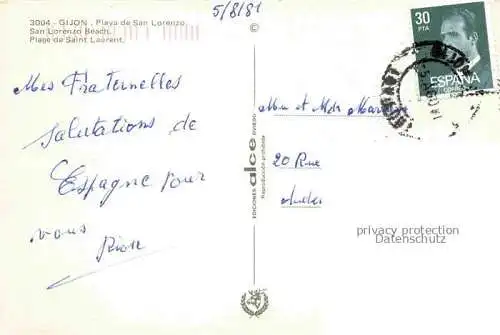 3004 - GIJON . Playa de San Lorenzo.
San Lorenzo Beach.
Plage de Saint Laurent.
5/8/81
30
PTA
ESPAÑA
Mes Fraternelles
salutations de
Espagne pour
vous
EDICIONES alce OVIEDO
Reproducción prohibida
20 Rue
privacy protection
Datenschutz